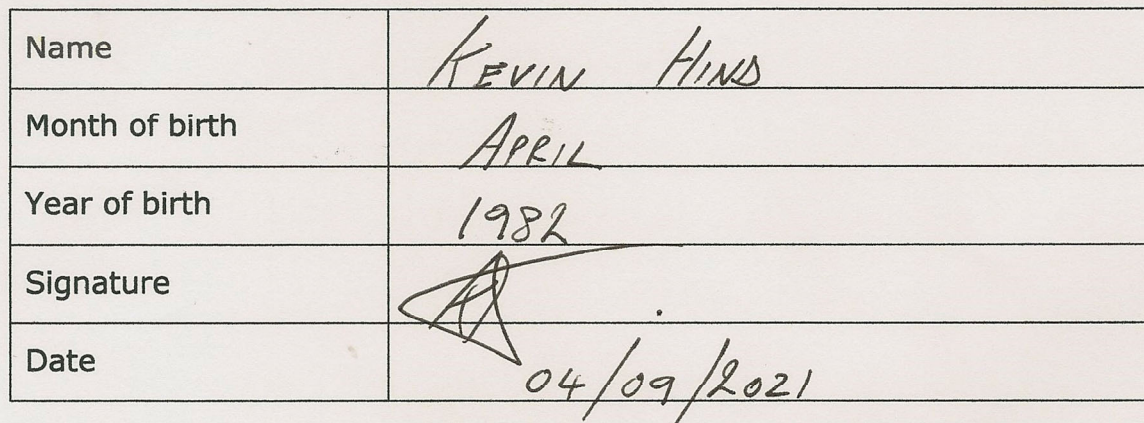 Name KEVIN HIND
Month of birth APRIL
Year of birth 1982
Signature
Date 04/09/2021